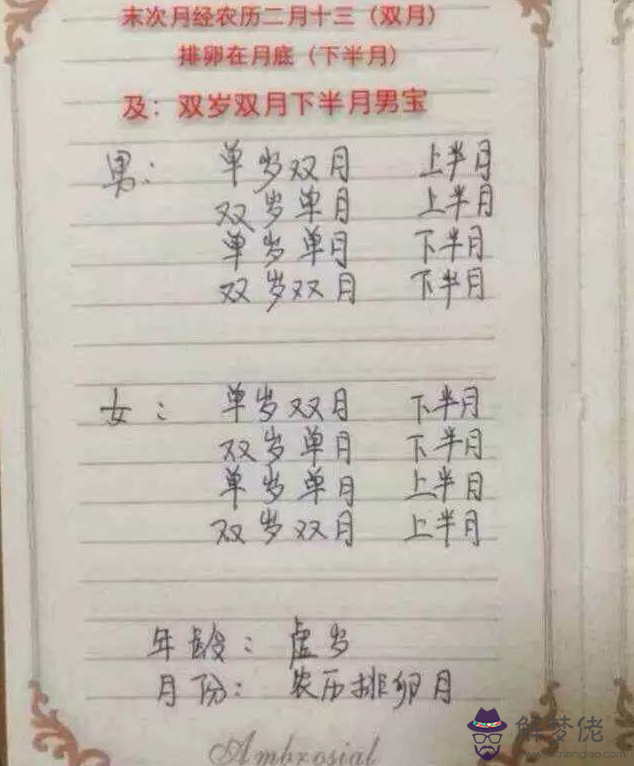 末次月经农历二月十三（双月）
排卵在月底（下半月）
及：双岁双月下半月男宝
男： 单岁双月 上半月
双岁单月 上半月
单岁单月 下半月
双岁双月 下半月
女： 单岁双月 下半月
双岁单月 下半月
单岁单月 上半月
双岁双月 上半月
年龄：虚岁
月份：农历排卵月
Ambrosial
解梦佬